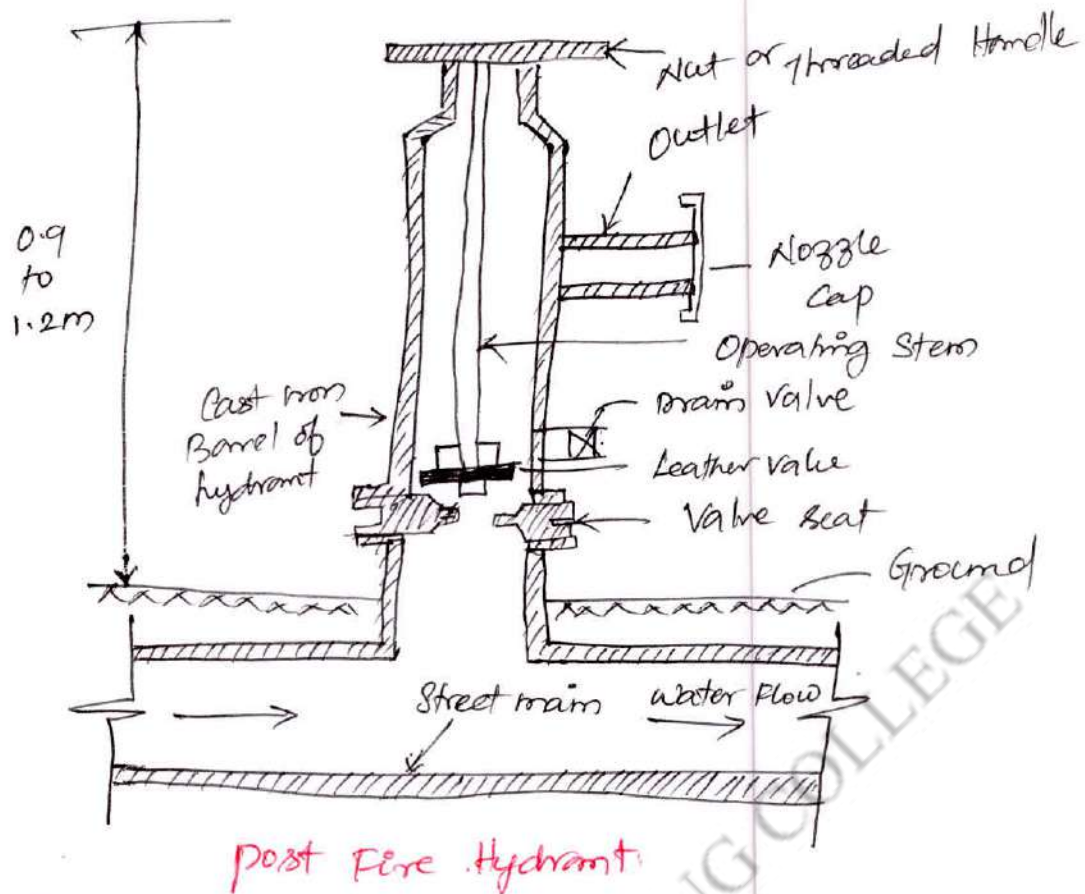 Nut or Threaded Handle
Outlet
0.9
to
1.2m
Nozzle
Cap
Operating Stem
Cast iron
Barrel of
hydrant
Drain valve
Leather valve
Valve seat
Ground
Street main
Water Flow
Post Fire Hydrant.
NG COLLEGE